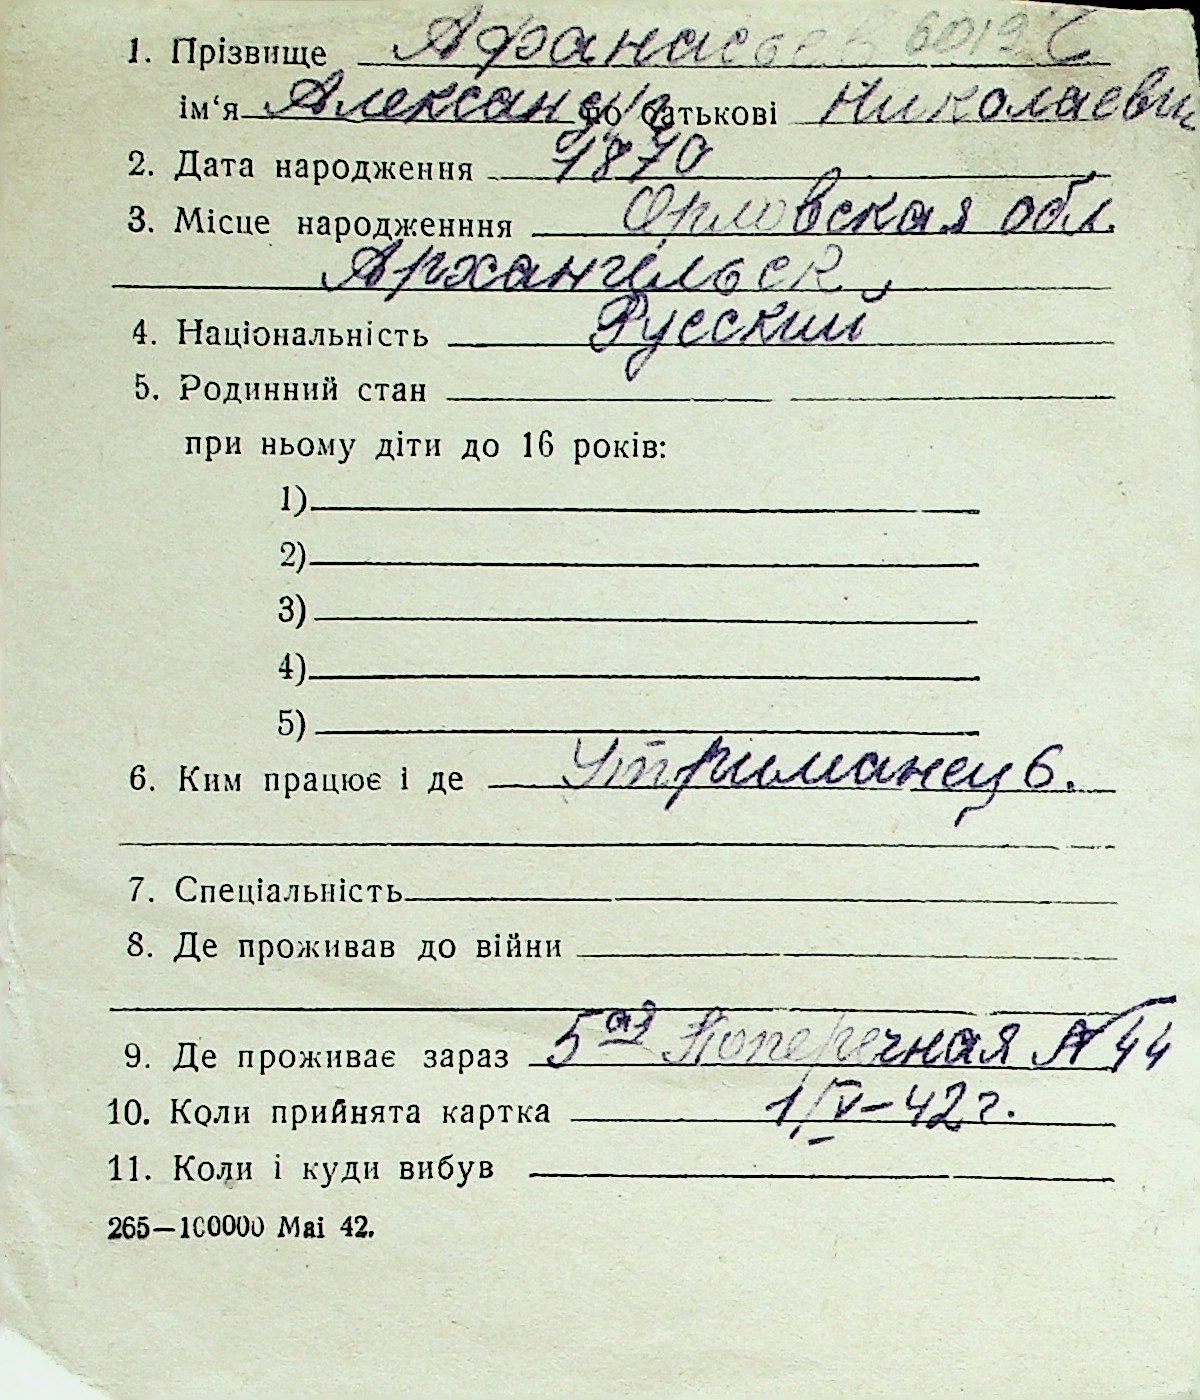 1. Прізвище Афанасьев 6019
ім‘я Александр по батькові Николаевич
2. Дата народження 1870
3. Місце народженння Орловская обл.
Архангельск,
4. Національність Русский
5. Родинний стан
при ньому діти до 16 років:
1)
2)
3)
4)
5)
6. Ким працює і де Утриманец б.
7. Спеціальність
8. Де проживав до війни
9. Де проживає зараз 5ая Поперечная № 44
10. Коли прийнята картка 1/IV-42г.
11. Коли і куди вибув
265—100000 Mai 42.